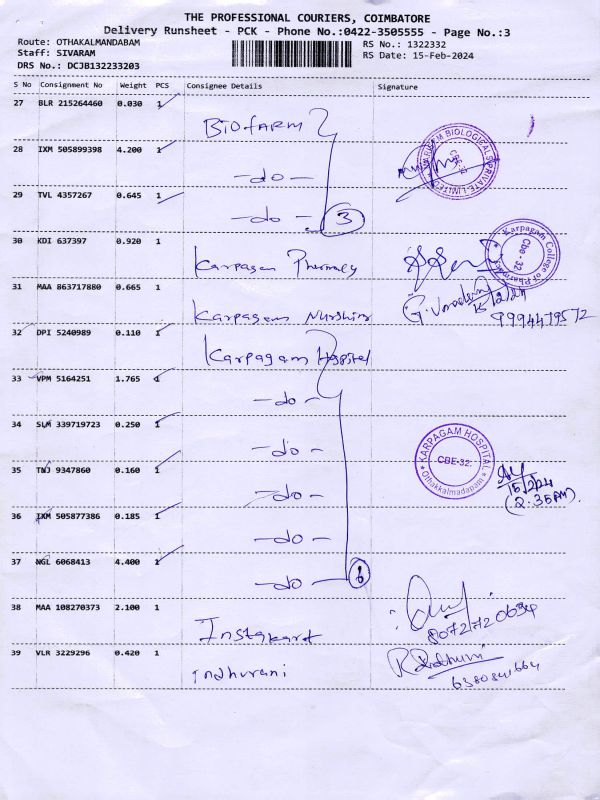 THE PROFESSIONAL COURIERS, COIMBATORE
Delivery Runsheet - PCK - Phone No.:0422-3505555 - Page No.:3
Route: OTHAKALMANDABAM
RS No.: 1322332
Staff: SIVARAM
RS Date: 15-Feb-2024
DRS No.: DCJB132233203
S No Consignment No Weight PCS Consignee Details Signature
27 BLR 215264460 0.030 1
BIOFARM
28 IXM 505899398 4.200 1
-do-
29 TVL 4357267 0.645 1
-do- 3
30 KDI 637397 0.920 1
Karpagam Pharmacy
31 MAA 863717880 0.665 1
15/2/24
Karpagam Nurshing
9994479572
32 DPI 5240989 0.110 1
Karpagam Hospital
33 VPM 5164251 1.765 1
-do-
34 SLM 339719723 0.250 1
KARPAGAM HOSPITAL
CBE-32.
Othakkalmadapam
-do-
35 TNJ 9347860 0.160 1
15/2/24
(2:35PM).
-do-
36 IXM 505877386 0.185 1
-do-
37 NGL 6068413 4.400 1
-do- 6
38 MAA 108270373 2.100 1
Instakart
8072720634
39 VLR 3229296 0.420 1
Indhurani
6380841664